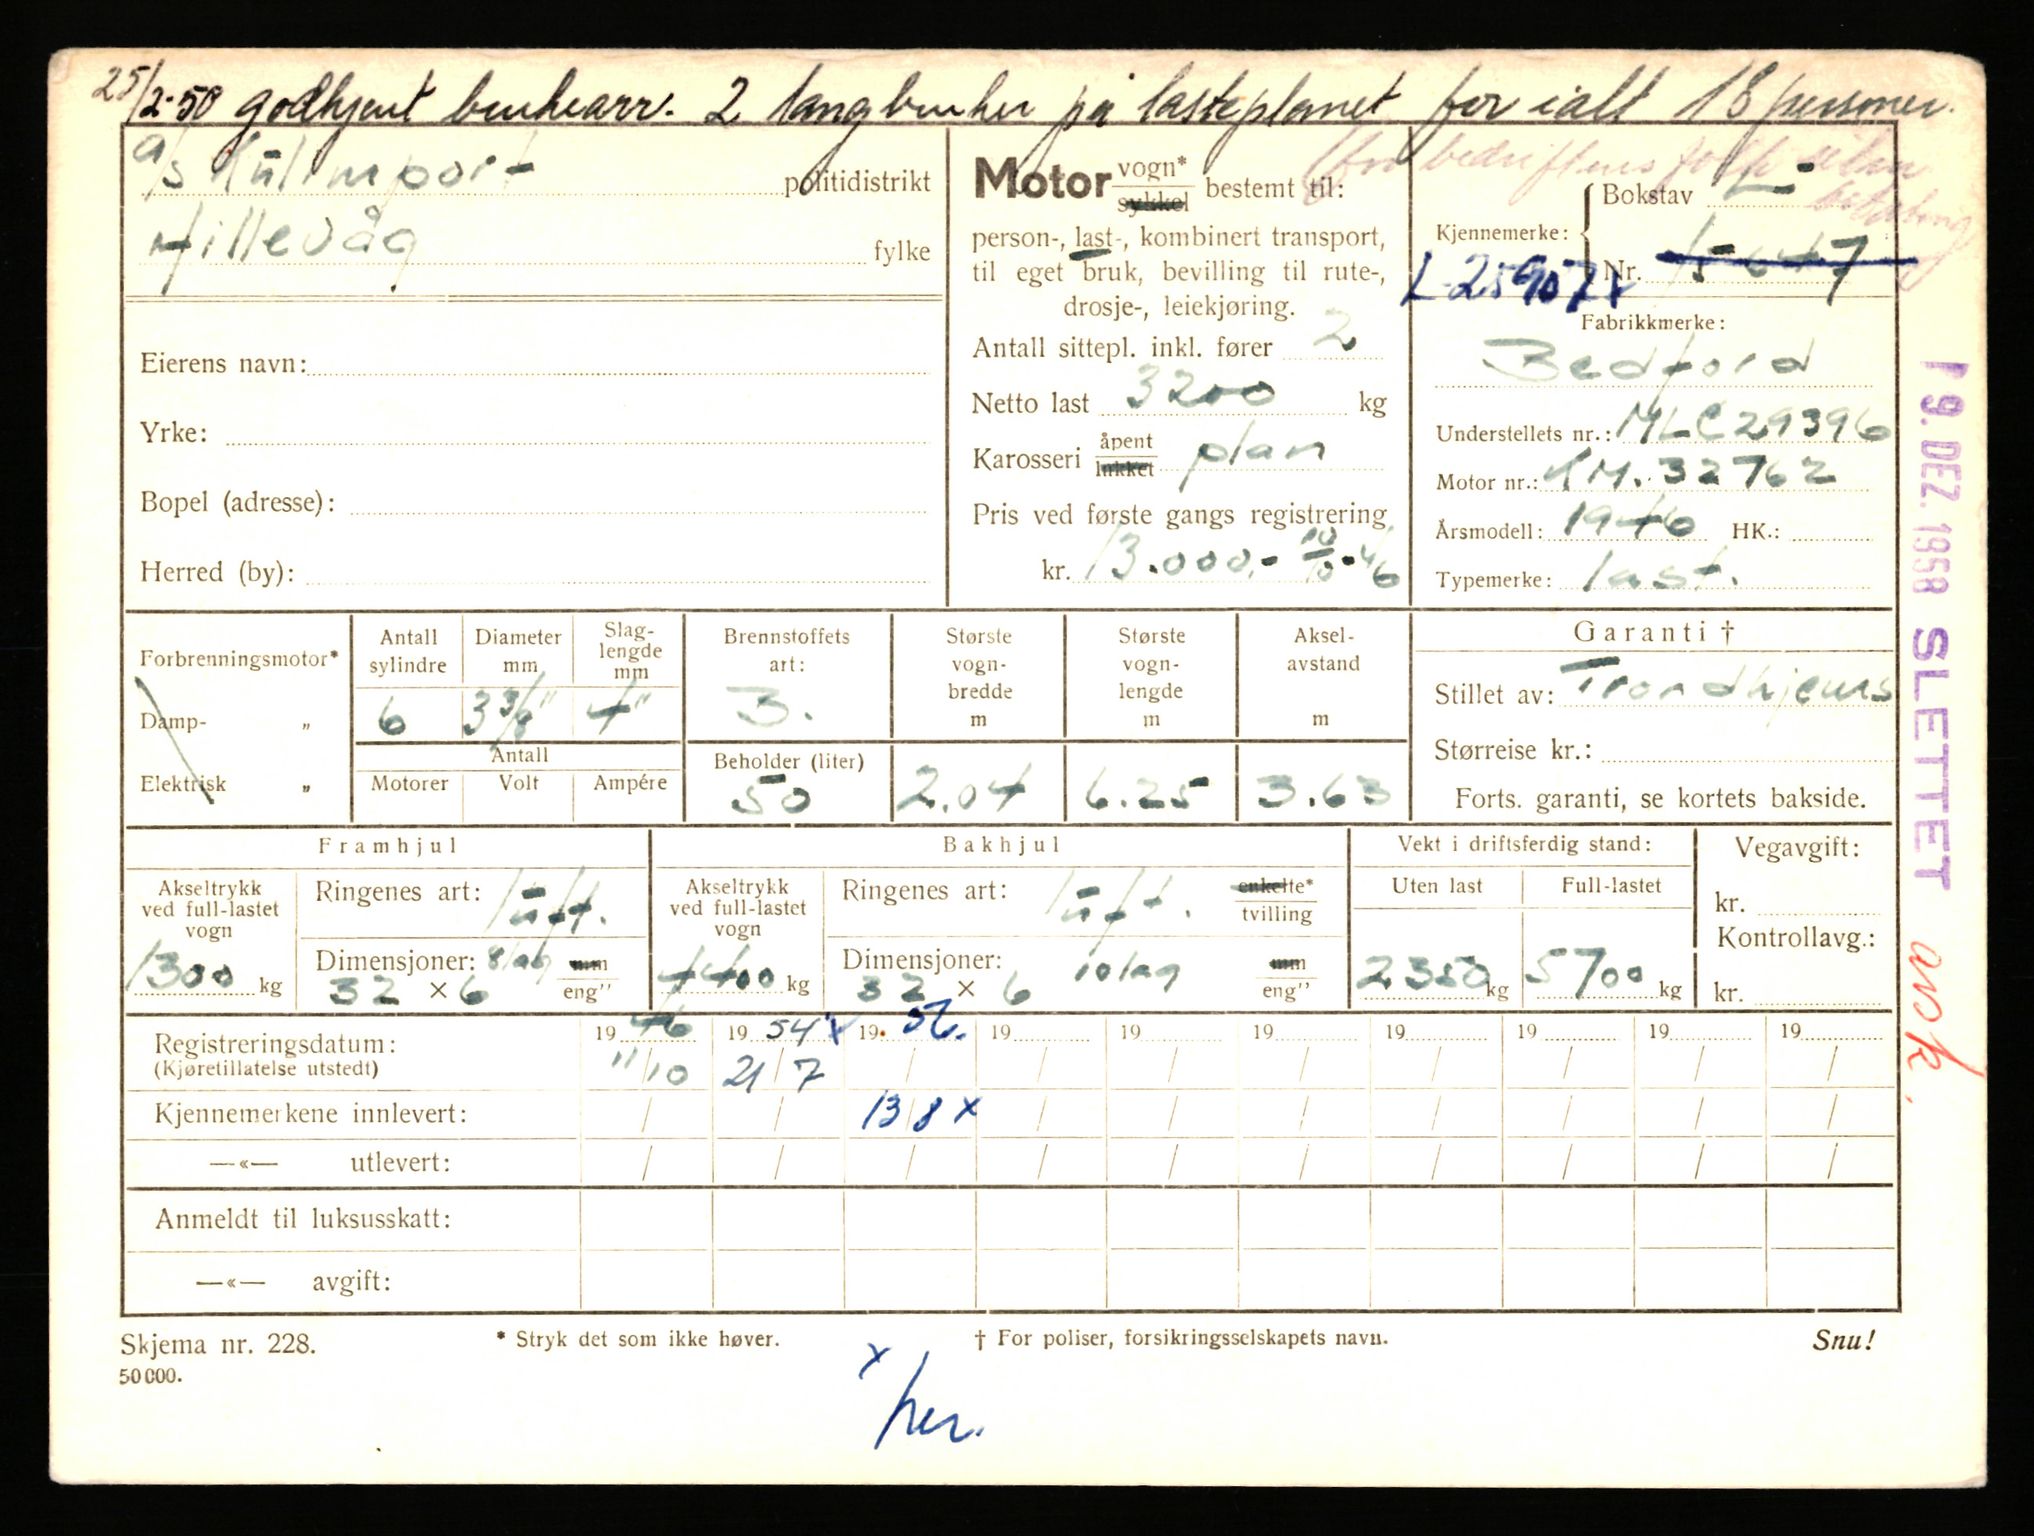 25/2-50 godkjent benkearr. 2 langbenker på lasteplanet for ialt 18 personer.
(for bedriftens folk uten betaling
A/S Kulimport politidistrikt
Hillevåg fylke
Eierens navn:
Yrke:
Bopel (adresse):
Herred (by):
Motor vogn* sykkel bestemt til:
person-, last-, kombinert transport,
til eget bruk, bevilling til rute-,
drosje-, leiekjøring.
Antall sittepl. inkl. fører 2
Netto last 3200 kg
Karosseri åpent lukket plan
Pris ved første gangs registrering
kr. 13.000.- 10/10-46
Bokstav L-
Kjennemerke:
Nr. 15647
L-25907x
Fabrikkmerke:
Bedford
Understellets nr.: MLC29396
Motor nr.: KM.32762
Årsmodell: 1946 HK.:
Typemerke: last.
Forbrenningsmotor*
Damp- „
Elektrisk „
Antall sylindre
6
Diameter mm
3 3/8"
Slag-lengde mm
4"
Antall
Motorer Volt Ampére
Brennstoffets art:
B.
Beholder (liter)
50
Største vogn-bredde m
2.04
Største vogn-lengde m
6.25
Aksel-avstand m
3.63
Garanti †
Stillet av: Trondhjems
Størreise kr.:
Forts. garanti, se kortets bakside.
Framhjul
Akseltrykk ved full-lastet vogn
1300 kg
Ringenes art: luft.
Dimensjoner: 8 lag mm
32 × 6 eng"
Bakhjul
Akseltrykk ved full-lastet vogn
4400 kg
Ringenes art: luft. enkelte* tvilling
Dimensjoner: 10 lag mm
32 × 6 eng"
Vekt i driftsferdig stand:
Uten last Full-lastet
2350 kg 5700 kg
Vegavgift:
kr.
Kontrollavg.:
kr.
Registreringsdatum: 19 46 19 54 x 19 56. 19 19 19 19 19 19 19
(Kjøretillatelse utstedt) 11/10 21/7 / / / / / / / /
Kjennemerkene innlevert: / / 13/8 x / / / / / / /
—«— utlevert: / / / / / / / / / /
Anmeldt til luksusskatt:
—«— avgift:
Skjema nr. 228.
50 000.
* Stryk det som ikke høver.
† For poliser, forsikringsselskapets navn.
Snu!
x
her.
19. DEZ. 1958 SLETTET